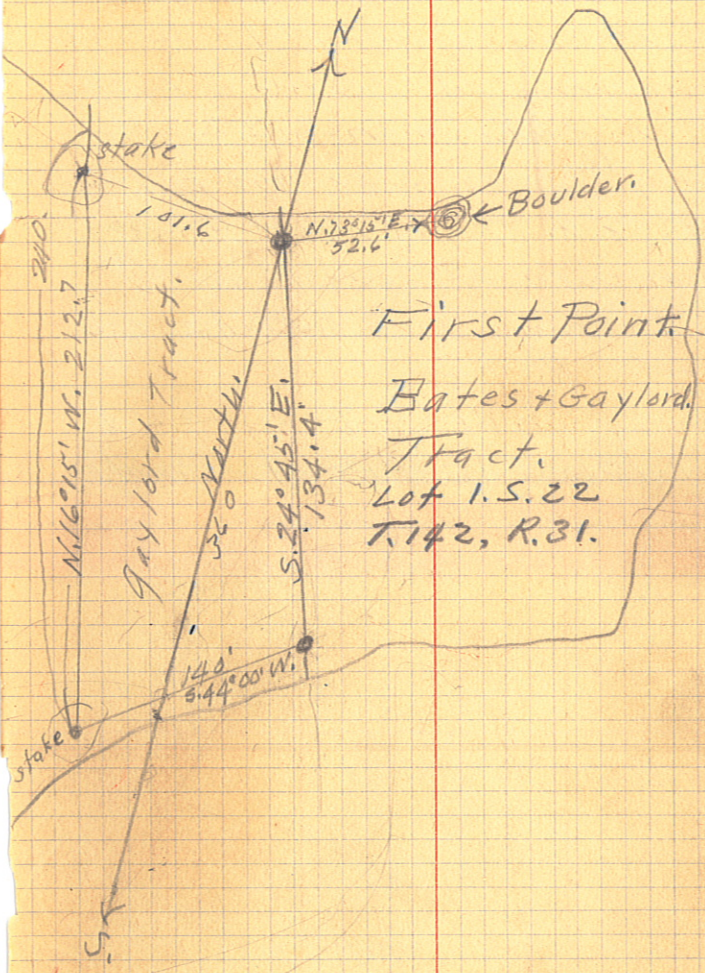 N
stake
101.6
N.73°15'E.
52.6'
Boulder.
240.
N.16°15' W. 212.7
Gaylord Tract.
North.
360
S.24°45' E.
134.4'
First Point.
Bates + Gaylord.
Tract.
Lot 1. S. 22
T.142, R.31.
140'
S.44°00' W.
stake
S.